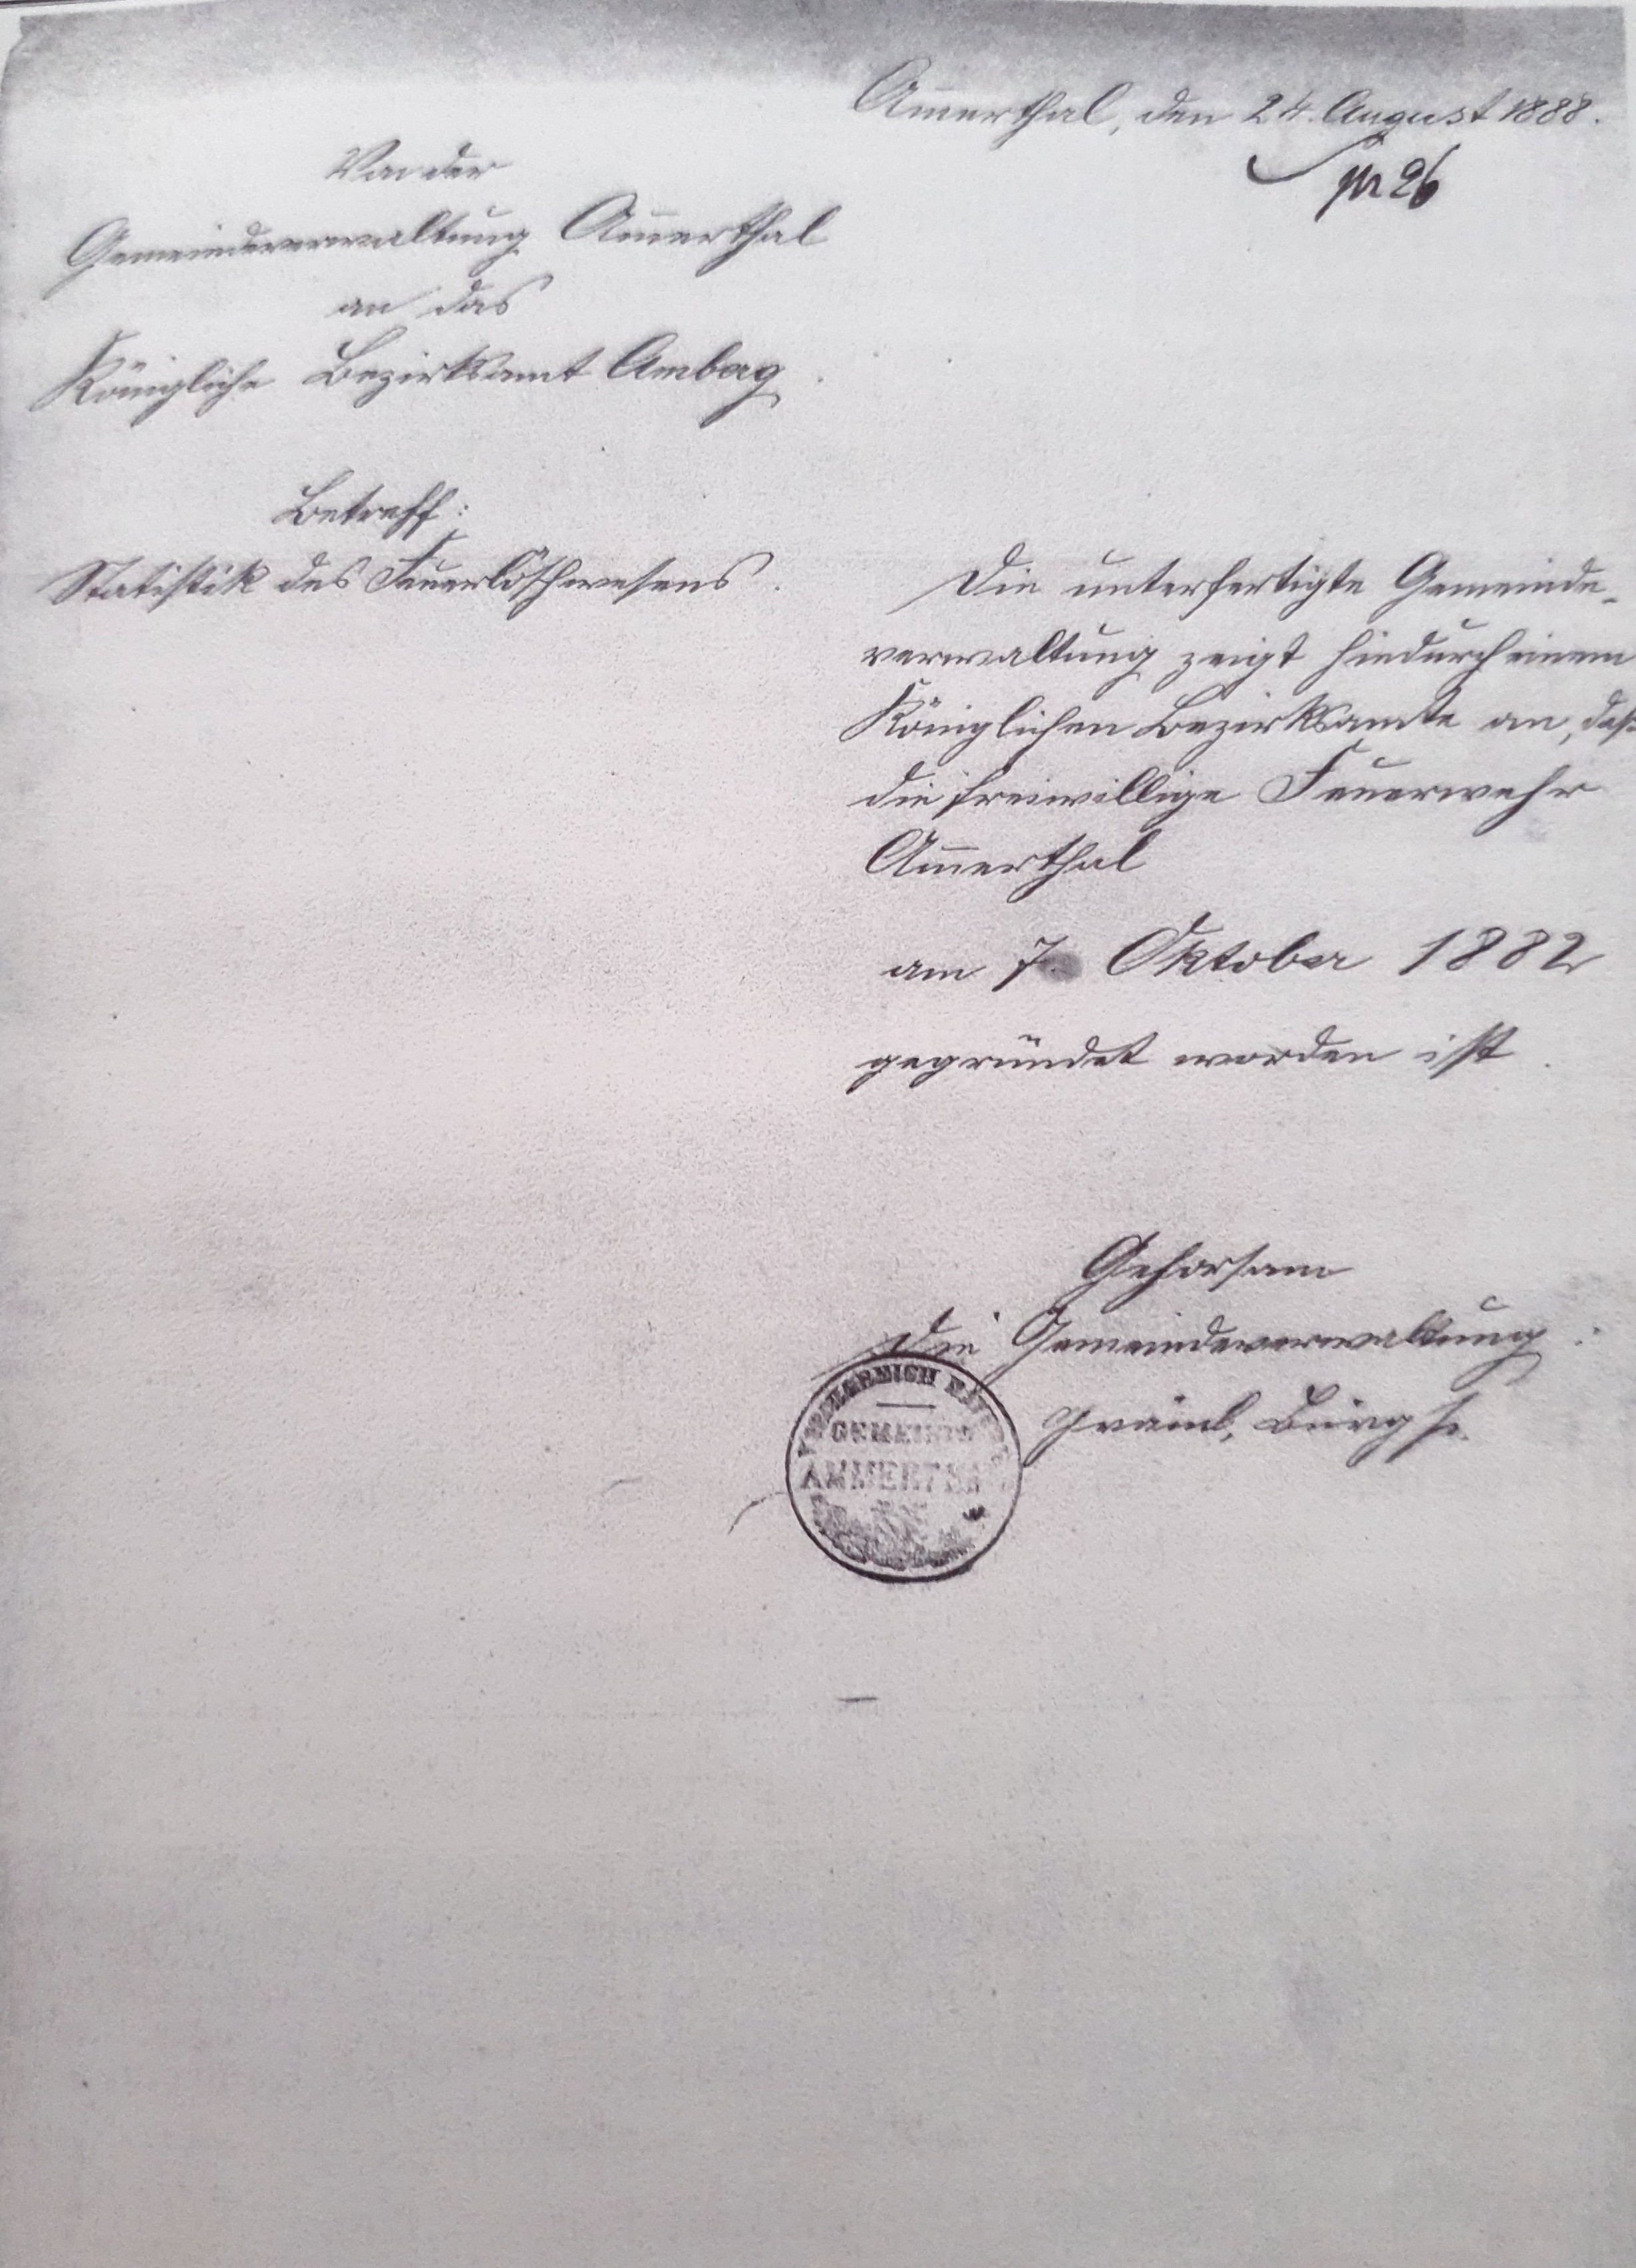 Am̅erthal, den 24. August 1888.
pr 26
Von der
Gemeindeverwaltung Am̅erthal
an das
Königliche Bezirksamt Amberg.
Betreff:
Statistik des Feuerlöschwesens.
Die unterfertigte Gemeinde-
verwaltung zeigt hiedurch einem
Königlichen Bezirksamte an, daß
die freiwillige Feuerwehr
Am̅erthal
am 7. Oktober 1882
gegründet worden ist.
Gehorsam
Die Gemeindeverwaltung:
Bürgstr.
KOENIGREICH BAYERN
GEMEINDE
AMMERTHAL